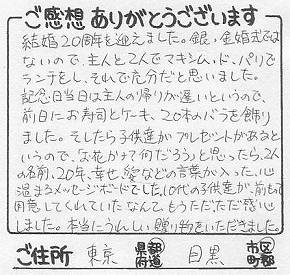 ご感想 ありがとうございます
結婚20周年を迎えました。銀、金婚式では
ないので、主人と2人でマキシム・ド・パリで
ランチをし、それで充分だと思いました。
記念日当日は主人の帰りが遅いというので、
前日にお寿司とケーキ、20本のバラを飾り
ました。そしたら子供達がプレゼントがあると
いうので、なにかで何だろう」と思ったら、2人
の名前、20年、幸せ、などの言葉が入った、心
温まるメッセージボードでした。10代の子供達が、前もって
用意してくれていたなんて、もうただただ感心
しました。本当にうれしい贈り物をいただきました。
ご住所 東京 都道府県 目黒 市区町郡